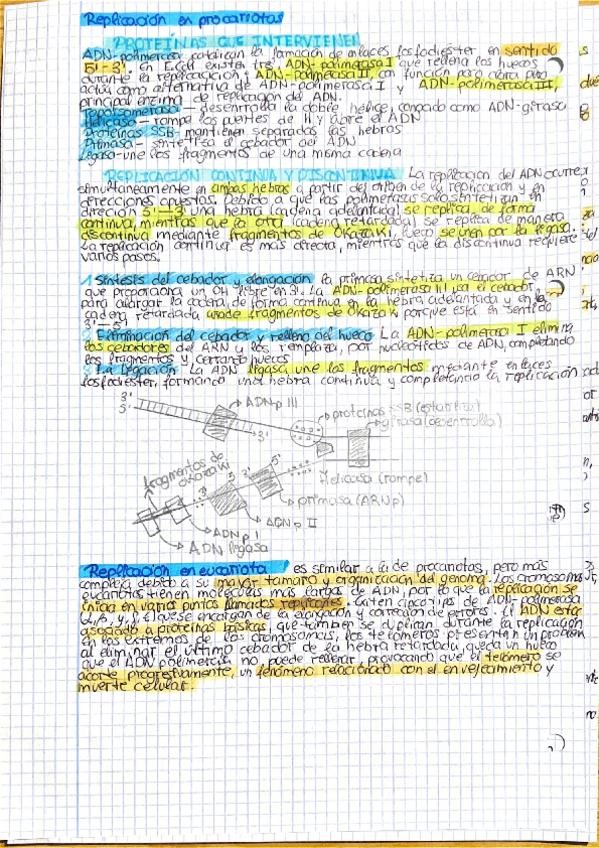 Replicación en procariotas
PROTEÍNAS QUE INTERVIENEN
ADN-polimerasa catalizan la formación de enlaces fosfodiester en sentido
5'-3'. En E.coli existen tres, ADN-polimerasa I que rellena los huecos
durante la replicación; ADN-polimerasa II, con función poco clara pero
actúa como alternativa de ADN-polimerasa I y ADN-polimerasa III,
principal enzima de replicación del ADN.
Topoisomerasa – desenrolla la doble hélice, conocida como ADN-girasa
Helicasa – rompe los puentes de H y abre el ADN
Proteínas SSB – mantienen separadas las hebras
Primasa – sintetiza el cebador del ADN
Ligasa – une los fragmentos de una misma cadena
REPLICACIÓN CONTINUA Y DISCONTINUA La replicación del ADN ocurre
simultaneamente en ambas hebras a partir del origen de la replicación y en
direcciones opuestas. Debido a que las polimerasas solo sintetizan en
dirección 5'-3' una hebra (cadena adelantada) se replica de forma
continua, mientras que la otra (cadena retardada) se replica de manera
discontinua mediante fragmentos de Okazaki, luego se unen por la ligasa.
La replicación continua es más directa, mientras que la discontinua requiere
varios pasos.
1. Síntesis del cebador y elongación la primasa sintetiza un cebador de ARN
que proporciona un OH libre en 3'. La ADN-polimerasa III usa el cebador
para alargar la cadena, de forma continua en la hebra adelantada y en la
cadena retardada añade fragmentos de Okazaki porque está en sentido
3'-5'
2. Eliminación del cebador y relleno del hueco La ADN-polimerasa I elimina
los cebadores de ARN y los remplaza, por nucleótidos de ADN, completando
los fragmentos y cerrando huecos
3. La ligación La ADN ligasa une los fragmentos mediante enlaces
fosfodiester, formando una hebra continua y completando la replicación
3'
5'
ADNp III
3'
proteínas SSB (estabiliza)
girasa (desenrolla)
Helicasa (rompe)
primasa (ARNp)
fragmentos de
okazaki
3'
5'
3'
5'
ADNp II
ADNp I
ADN ligasa
Replicación en eucariota es similar a la de procariotas, pero más
compleja debido a su mayor tamaño y organización del genoma. Los cromosomas
eucariotas tienen moléculas más largas de ADN, por lo que la replicación se
inicia en varios puntos llamados replicones. Existen cinco tipos de ADN-polimerasa
que se encargan de la elongación y corrección de errores. El ADN está
asociado a proteínas básicas, que también se duplican durante la replicación
en los extremos de los cromosomas, los telómeros presentan un problema
al eliminar el último cebador de la hebra retardada, queda un hueco
que el ADN polimerasa no puede rellenar, provocando que el telómero se
acorte progresivamente, un fenómeno relacionado con el envejecimiento y
muerte celular.